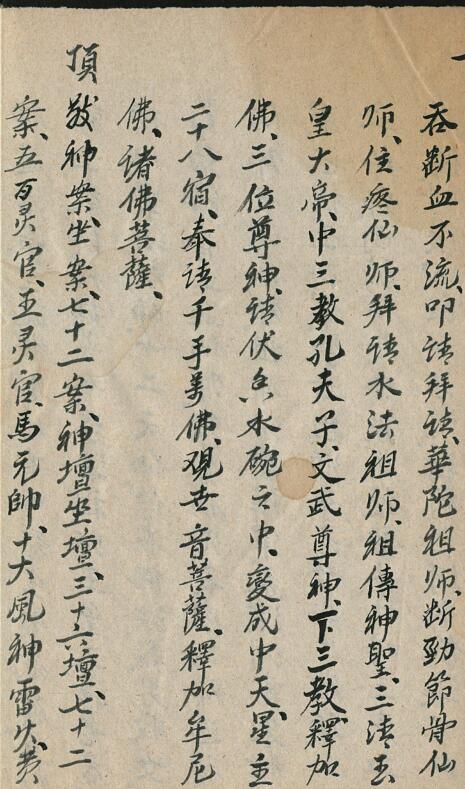 吞斷血不流、叩請拜請、華陀祖师、断劲節骨仙
师、住疼仙师、拜請水法祖师、祖傳神聖、三清玉
皇大帝、中三教孔夫子、文武尊神、下三教、釋加
佛、三位尊神、請伏水碗之中、變成中天、星主
二十八宿、奉請千手萬佛、观世音菩薩、釋加牟尼
佛、诸佛菩薩、
頂敬神案、坐案、七十二案、神壇坐壇、三十六壇、七十二
案、五百灵官、王灵官、馬元帥、十大風神雷火、黄